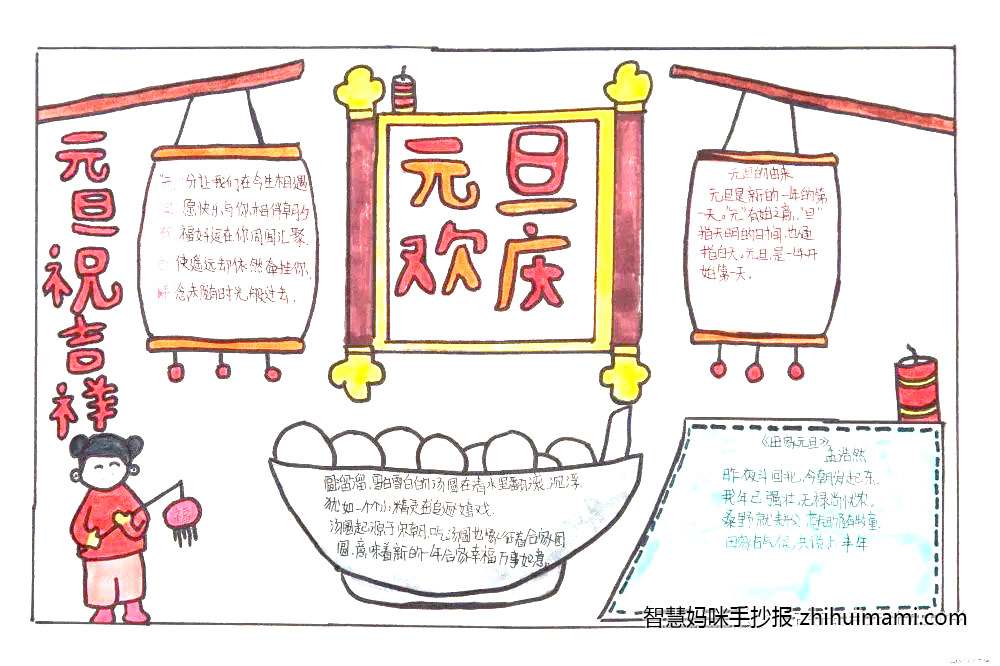 元旦祝吉祥
元旦
欢庆
分让我们在今生相遇
愿快乐与你相伴朝夕
福好运在你周围汇聚
使遥远却依然牵挂你
念未随时光般过去。
元旦的由来
元旦是新的一年的第
一天。"元"有始之意，"旦"
指天明的日间，也通
指白天。元旦，是一年开
始第一天。
圆溜溜，雪白雪白的汤圆在清水里翻滚，沉浮
犹如一个个小精灵在自西嬉戏.
汤圆起源于宋朝，吃汤圆也象征着合家团
圆，意味着新的一年合家幸福万事如意。
《田家元旦》
孟浩然
昨夜斗回北，今朝岁起东，
我年已强壮，无禄尚忧农，
桑野就耕父，荷锄随牧童
田家占气候，共说此丰年
福
智慧妈咪手抄报 zhihuimami.com